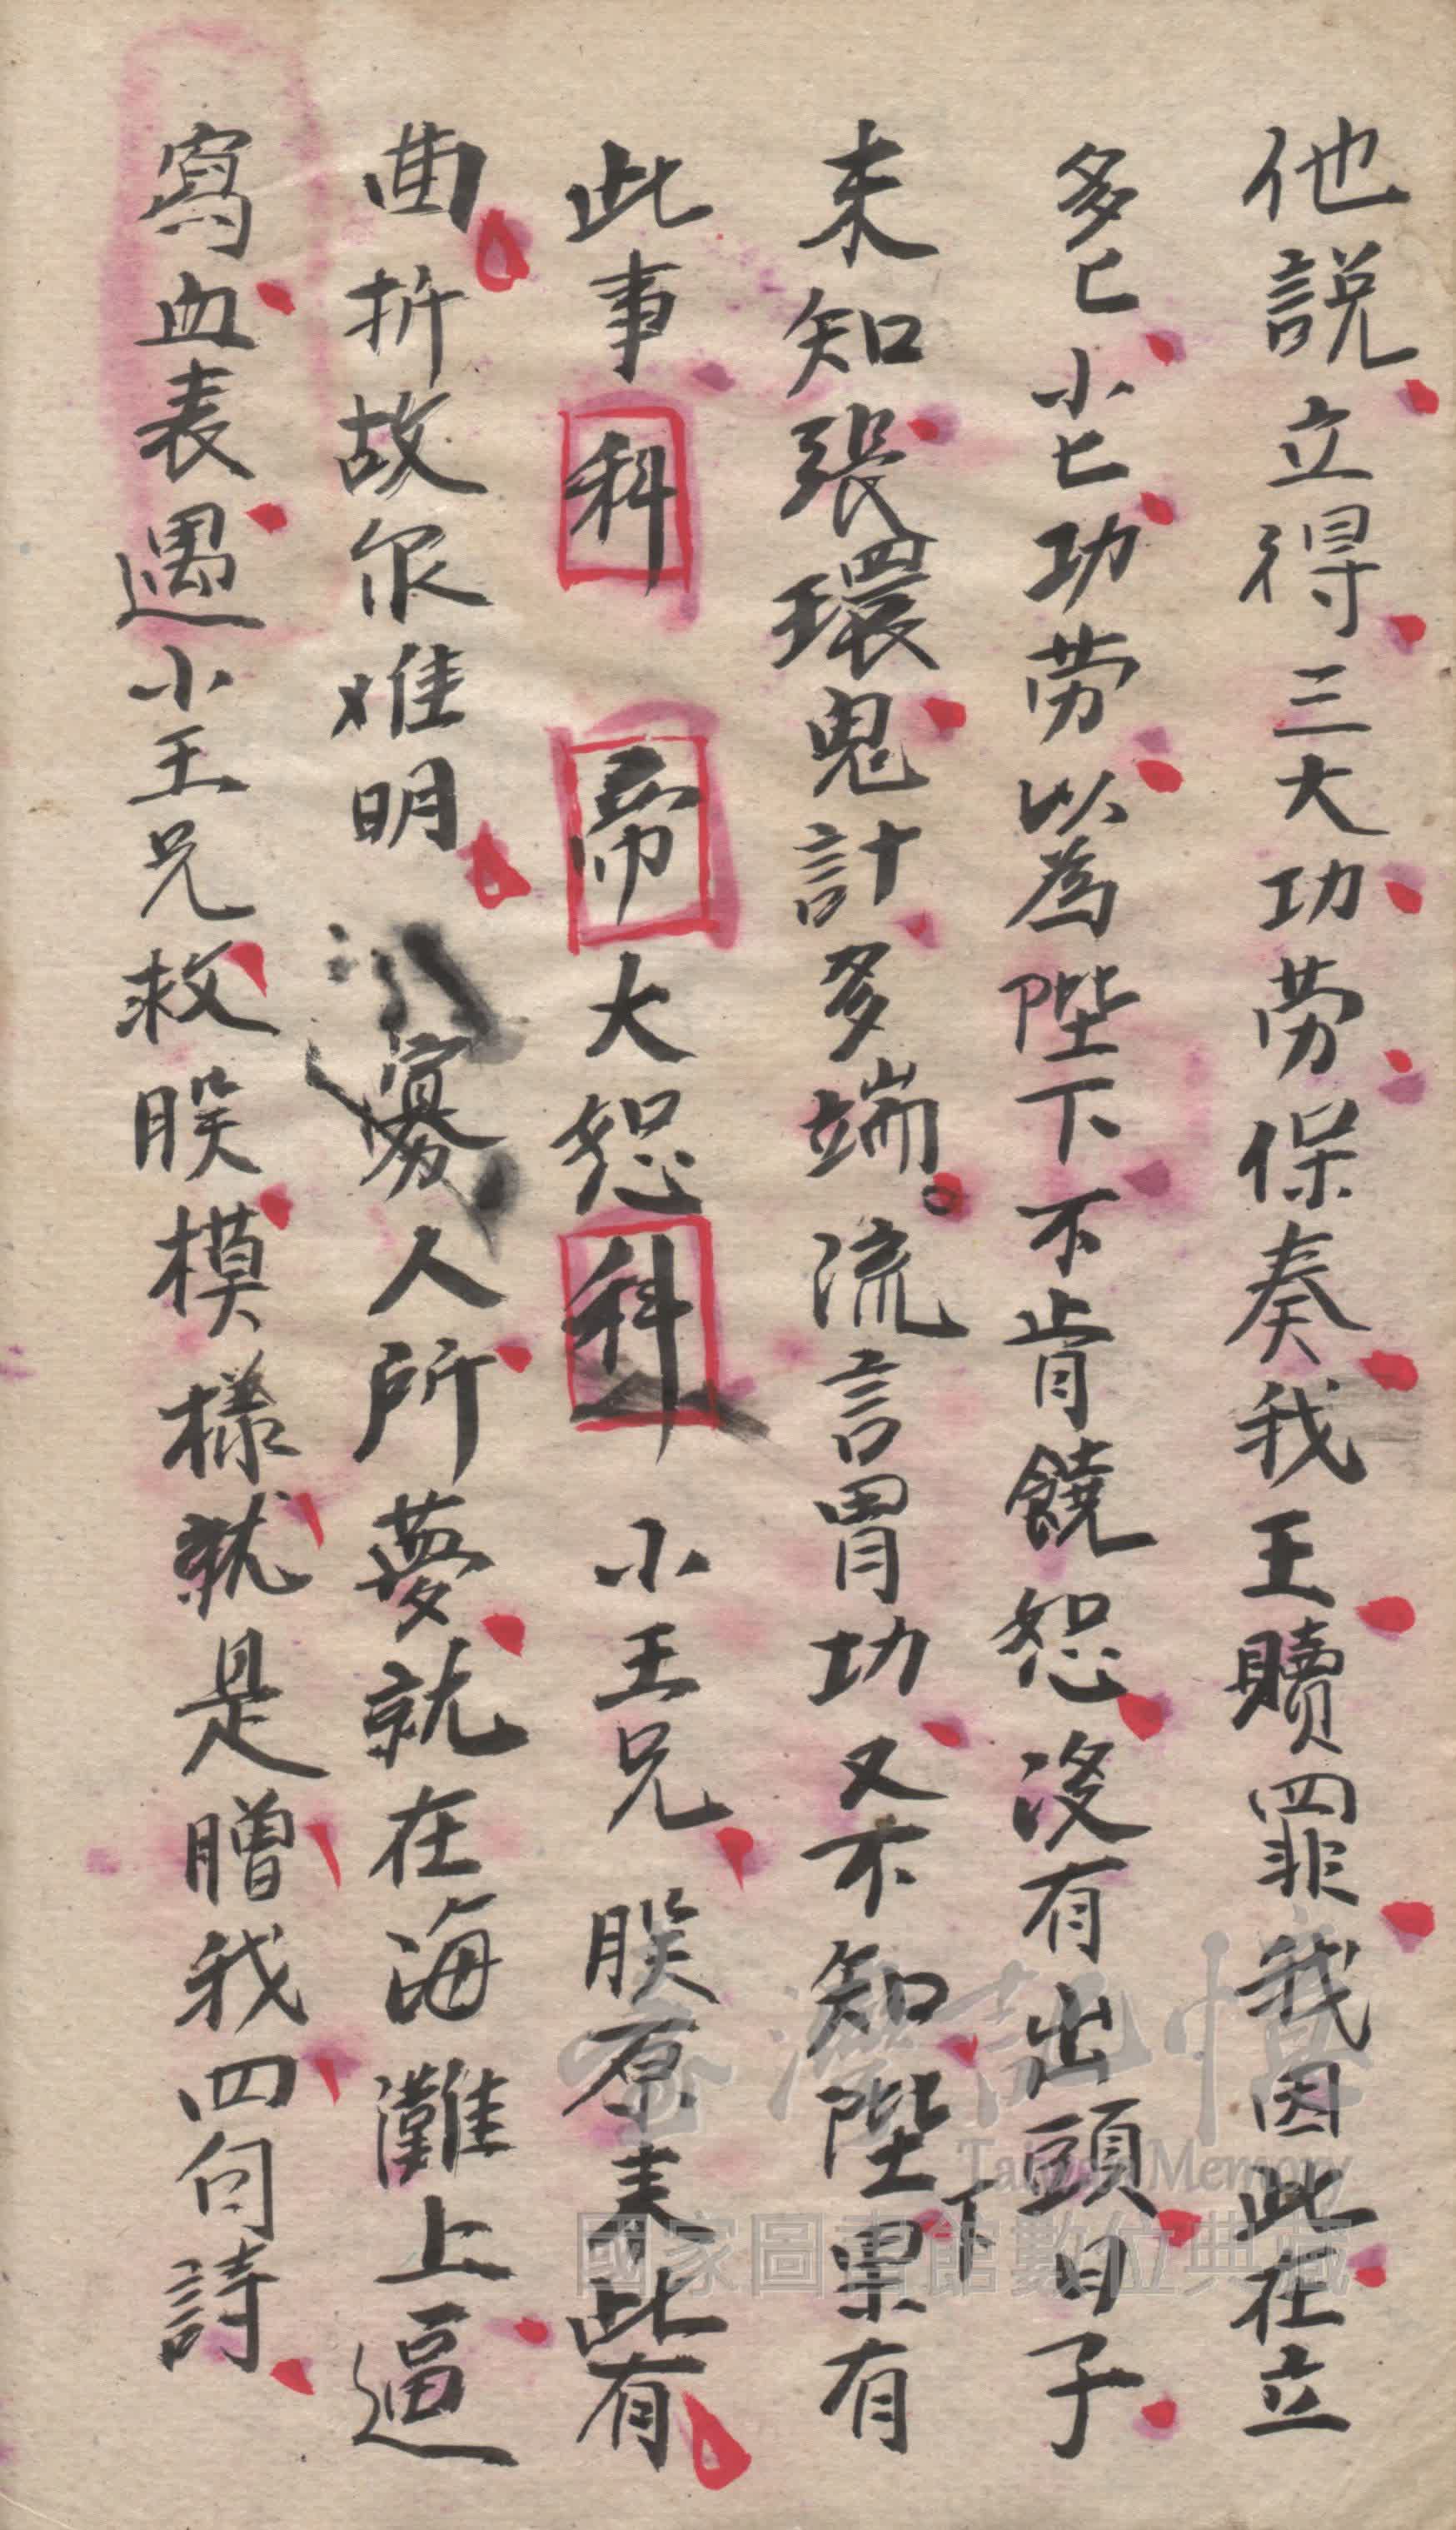 他説立得三大功劳保奏我王贖罪我因此在立
多匕小匕功劳以為陛下不肯饒恕沒有出頭日子
未知張環鬼計多端。流言胃功又不知陛下果有
此事科 帝大恕科 小王兄朕原来此有
曲折故尔难明 寡人所夢就在海灘上逼
寫血表遇小王兄救朕模樣就是贈我四句詩
臺灣記憶
Taiwan Memory
國家圖書館數位典藏